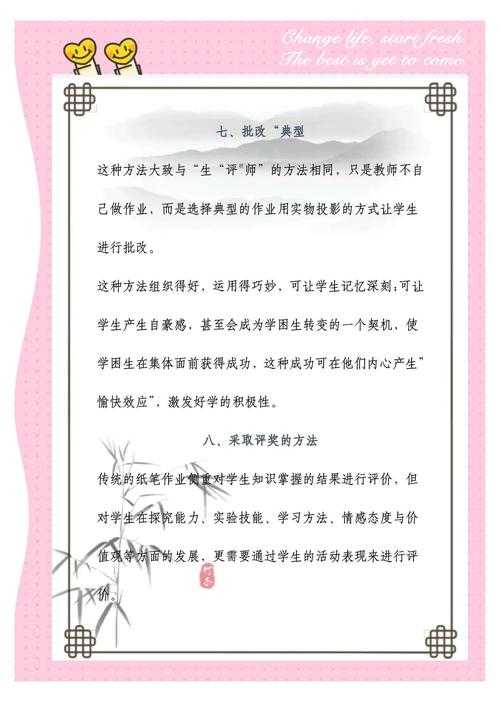 Change life, start fresh.
The best is yet to come
七、批改“典型
这种方法大致与“生“评“师”的方法相同，只是教师不自
己做作业，而是选择典型的作业用实物投影的方式让学生
进行批改。
这种方法组织得好，运用得巧妙，可让学生记忆深刻;可让
学生产生自豪感，甚至会成为学困生转变的一个契机，使
学困生在集体面前获得成功，这种成功可在他们内心产生”
愉快效应”，激发好学的积极性。
八、采取评奖的方法
传统的纸笔作业侧重对学生知识掌握的结果进行评价，但
对学生在探究能力、实验技能、学习方法、情感态度与价
值观等方面的发展，更需要通过学生的活动表现来进行评
价。